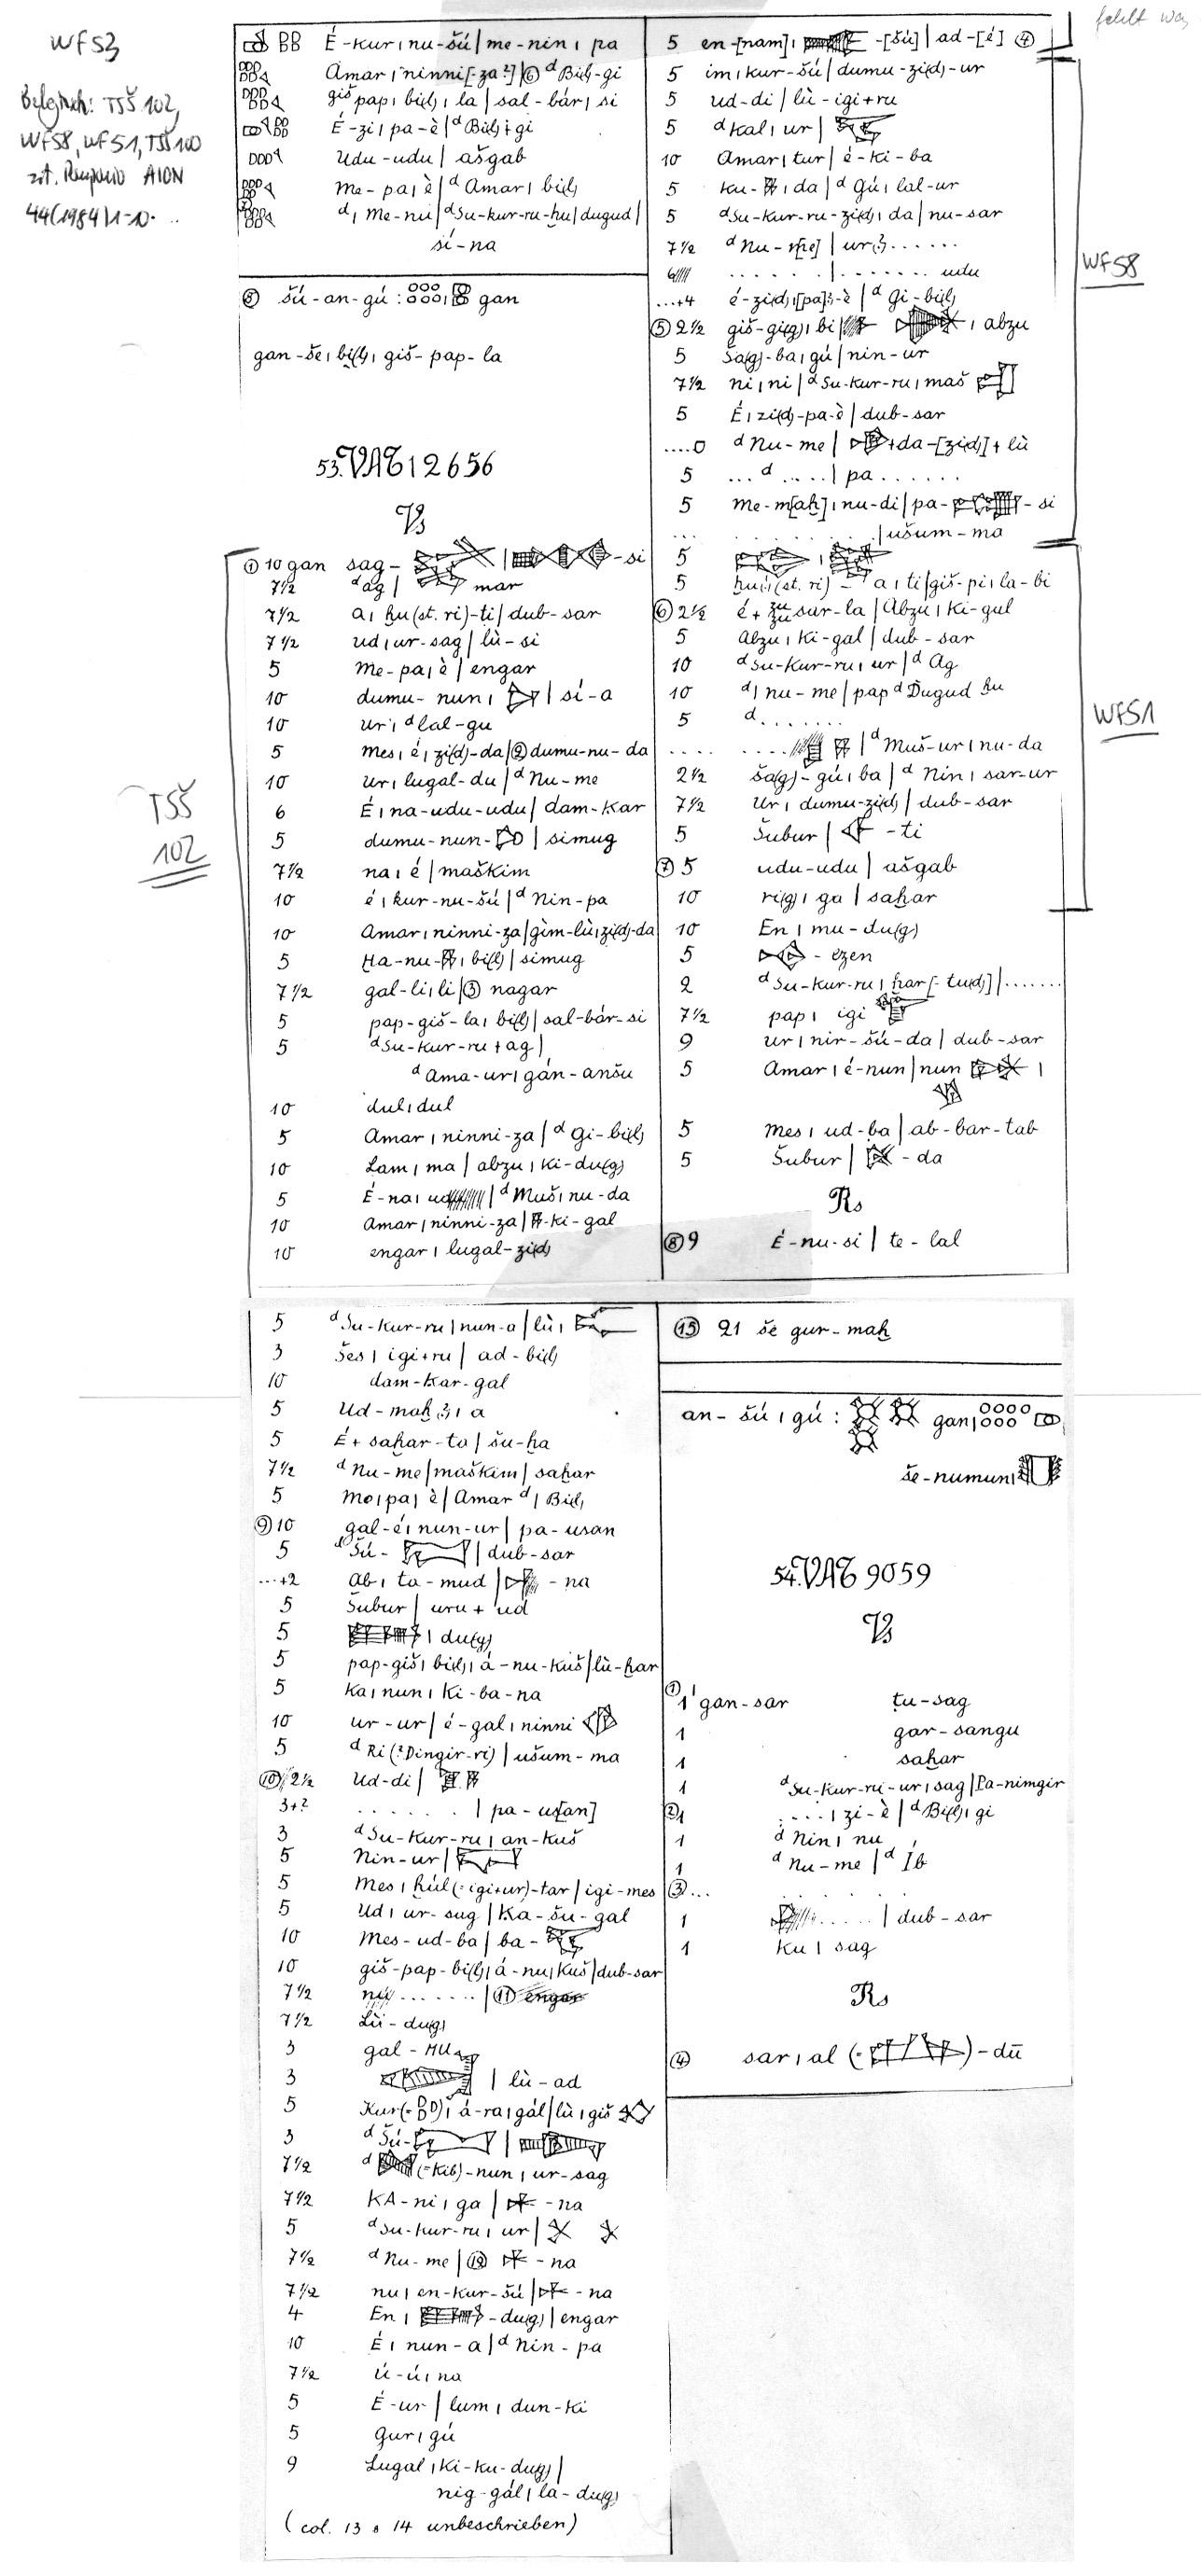 WF53
Vergleich: TSŠ 102,
WF58, WF51, TSŠ 100
zit. Pomponio AION
44 (1984) 1-10.
fehlt
É-kur ı nu-šú | me-nin ı pa
Amar ı ninni[-za?] | ⑥ ᵈBi(l)-gi
giš pap ı bi(l) ı la | sal-bár ı si
É-zi ı pa-è | ᵈBi(l) ı gi
Udu-udu | ašgab
Me-pa ı è | ᵈAmar ı bi(l)
ᵈ ı Me-nu | ᵈSu-kur-ru-ḫu | dugud |
si-na
⑧ šú-an-gú : gan
gan-še ı bi(l) ı giš-pap-la
53. VAT 12656
Vs
TSŠ
102
① 10 gan sag- | -si
7½ ᵈag | mar
7½ a ı ḫu (st. ri)-ti | dub-sar
7½ ud ı ur-sag | lù-si
5 me-pa ı è | engar
10 dumu-nun ı | si-a
10 ur ı ᵈlal-gu
5 mes ı é ı zi(d)-da | ② dumu-nu-da
10 ur ı lugal-du | ᵈNu-me
6 É ı na-udu-udu | dam-kar
5 dumu-nun- | simug
7½ na ı é | maškim
10 é ı kur-nu-šú | ᵈNin-pa
10 Amar ı ninni-za | gìm-lù ı zi(d)-da
5 Ḫa-nu- ı bi(l) | simug
7½ gal-li ı li | ③ nagar
5 pap-giš-la ı bi(l) | sal-bár-si
5 ᵈSu-kur-ru+ag |
ᵈAma-ur ı gán-anšu
10 dul ı dul
5 Amar ı ninni-za | ᵈGi-bi(l)
10 Lam ı ma | abzu ı ki-du(g)
5 É-na ı ud | ᵈMuš ı nu-da
10 Amar ı ninni-za | -ki-gal
10 engar ı lugal-zi(d)
5 en-[nam] ı -[šú] | ad-[é] ④
5 im ı kur-šú | dumu-zi(d)-ur
5 ud-di | lù-igi+ru
5 ᵈKal ı ur |
10 Amar ı tur | é-ki-ba
5 ku- ı da | ᵈGú ı lal-ur
5 ᵈSu-kur-ru-zi(d) ı da | nu-sar
7½ ᵈNu-[me] | ur ......
...... | ...... udu
...+4 é-zi(d) ı [pa]-è | ᵈGi-bi(l)
⑤ 2½ giš-gi(g) ı bi ı abzu
5 Ša(g)-ba ı gú | nin-ur
7½ ni ı ni | ᵈSu-kur-ru ı maš
5 É ı zi(d)-pa-è | dub-sar
.... ᵈNu-me | +da-[zi(d)]+lù
5 ...ᵈ..... | pa......
5 me-m[aḫ] ı nu-di | pa- -si
... ........ | ušum-ma
WF58
5
5 ḫu(!) (st. ri)- a ı ti | giš-pi ı la-bi
⑥ 2½ é+ sar-la | Abzu ı ki-gal
5 Abzu ı ki-gal | dub-sar
10 ᵈSu-kur-ru ı ur | ᵈAg
10 ᵈ ı nu-me | pap ᵈDugud ḫu
5 ᵈ.......
.... .... | ᵈMuš-ur ı nu-da
2½ Ša(g)-gú ı ba | ᵈNin ı sar-ur
7½ Ur ı dumu-zi(d) | dub-sar
5 Šubur | -ti
⑦ 5 udu-udu | ašgab
10 ri(g) ı ga | saḫar
WF51
10 En ı mu-du(g)
5 -ezen
2 ᵈSu-kur-ru ı ḫar[-tu(d)] | .......
7½ pap ı igi
9 ur ı nir-šú-da | dub-sar
5 Amar ı é-nun | nun ı
5 Mes ı ud-ba | ab-bar-tab
5 Šubur | -da
Rs
⑧ 9 É-nu-si | te-lal
5 ᵈSu-kur-ru ı nun-a | lù ı
3 Šeš ı igi+ru | ad-bi(l)
10 dam-kar-gal
5 Ud-maḫ ı a
5 É+saḫar-ta | šu-ḫa
7½ ᵈNu-me | maškim | saḫar
5 Me ı pa ı è | Amar ᵈ ı Bi(l)
⑨ 10 gal-é ı nun-ur | pa-usan
5 ᵈŠú- | dub-sar
...+2 Ab ı ta-mud | -na
5 Šubur | uru+ud
5 ı du(g)
5 pap-giš ı bi(l) ı á-nu-kuš | lù-ḫar
5 Ka ı nun ı ki-ba-na
10 ur-ur | é-gal ı ninni
5 ᵈRi (?Dingir-ri) | ušum-ma
⑩ 2½ Ud-di |
3+? ...... | pa-u[san]
3 ᵈSu-kur-ru ı an-kuš
5 Nin-ur |
5 Mes ı ḫúl (=igi+ur)-tar | igi-mes
5 Ud ı ur-sag | Ka-šu-gal
10 Mes-ud-ba | ba-
10 giš-pap-bi(l) ı á-nu ı kuš | dub-sar
7½ nu ....... | ⑪ engar
7½ Lù-du(g)
3 gal-MU
3 | lù-ad
5 Kur (= ) ı á-ra ı gál | lù ı giš
3 ᵈŠú- |
7½ ᵈ (=Kib)-nun ı ur-sag
7½ KA-ni ı ga | -na
5 ᵈSu-kur-ru ı ur |
7½ ᵈNu-me | ⑫ -na
7½ nu ı en-kur-šú | -na
4 En ı -du(g) | engar
10 É ı nun-a | ᵈNin-pa
7½ ú-ú ı na
5 É-ur | lum ı dun-ki
5 Gur ı gú
9 Lugal ı ki-ku-du(g) |
nig-gál ı la-du(g)
(col. 13 u 14 unbeschrieben)
⑮ 21 še gur-maḫ
an-šú ı gú : gan ı
še-numun ı
54. VAT 9059
Vs
① 1 gan-sar tu-sag
1 gar-sangu
1 saḫar
1 ᵈSu-kur-ru-ur ı sag | Pa-nimgir
② 1 .... ı zi-è | ᵈBi(l) ı gi
1 ᵈNin ı nu
1 ᵈNu-me | ᵈÍb
③ ... ......
1 ..... | dub-sar
1 Ku ı sag
Rs
④ sar ı al (= )-dū